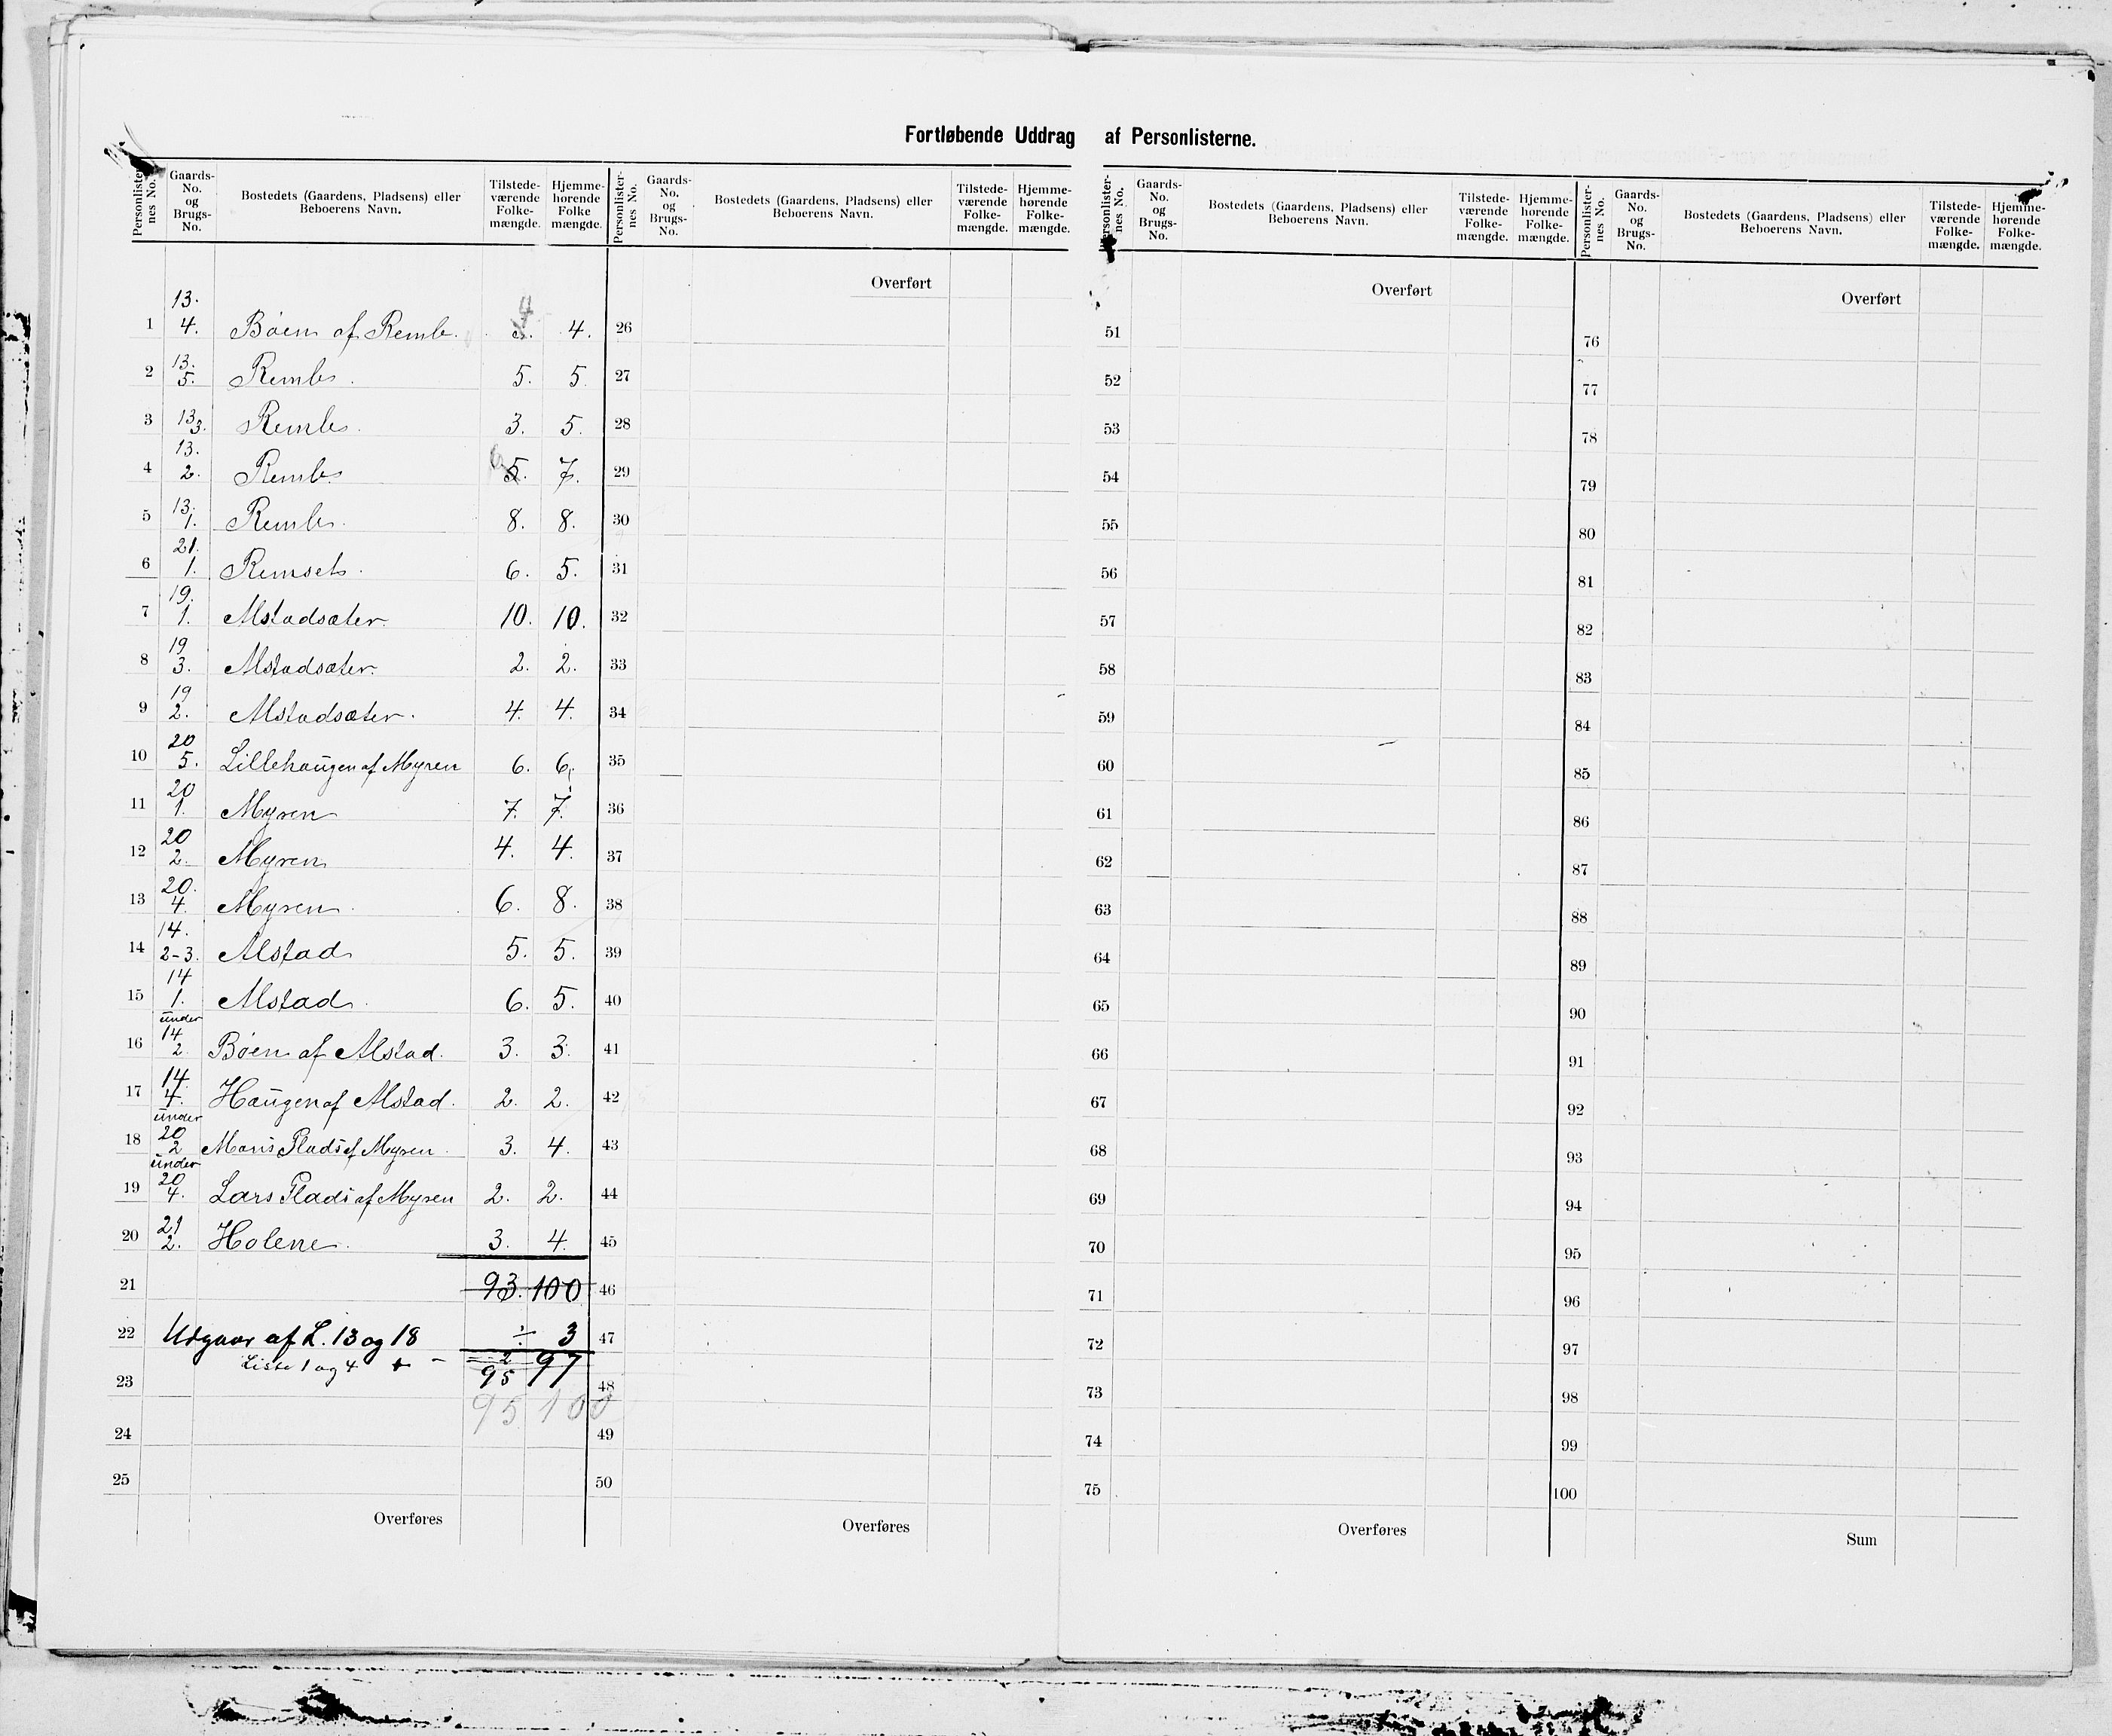 Fortløbende Uddrag af Personlisternes.
Personlisternes No. Gaards-No. og Brugs-No. Bostedets (Gaardens, Pladsens) eller Beboerens Navn. Tilstedeværende Folkemængde. Hjemmehørende Folkemængde.
Overført Overført Overført
1 13. 4. Bøen af Remb. 4 4.
2 13. 5. Remb. 5. 5.
3 13 3. Remb. 3. 5.
4 13. 2. Remb 6 5. 7.
5 13. 1. Remb. 8. 8.
6 21. 1. Remset. 6. 5.
7 19. 1. Alstadsæter. 10. 10.
8 19 3. Alstadsæter. 2. 2.
9 19 2. Alstadsæter. 4. 4.
10 20 5. Lillehaugen af Myren 6. 6.
11 20 1. Myren 7. 7.
12 20 2. Myren 4. 4.
13 20. 4. Myren. 6. 8.
14 14. 2-3. Alstad 5. 5.
15 14 1. Alstad. 6. 5.
16 under 14 2 Bøen af Alstad. 3. 3.
17 14. 4. Haugen af Alstad. 2. 2.
18 under 20 2 Plads af Myren. 3. 4.
19 under 20 4. Lars Plads af Myren 2. 2.
20 21 2. Holene. 3. 4.
21 93. 100
22 Udgaar af L. 13 og 18 ÷ 3
Liste 1 og 4 + 2 97
23 95
95 100
24
25
Overføres
26
27
28
29
30
31
32
33
34
35
36
37
38
39
40
41
42
43
44
45
46
47
48
49
50
Overføres
51
52
53
54
55
56
57
58
59
60
61
62
63
64
65
66
67
68
69
70
71
72
73
74
75
Overføres
76
77
78
79
80
81
82
83
84
85
86
87
88
89
90
91
92
93
94
95
96
97
98
99
100
Sum